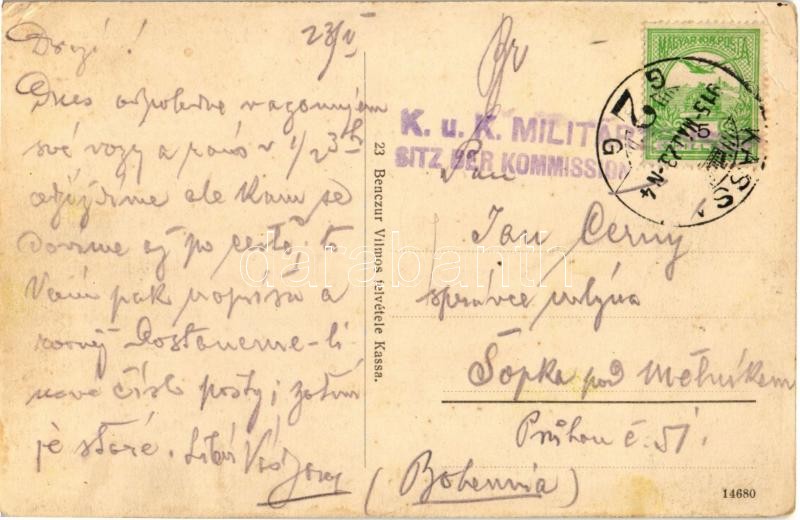 23/V
Drazí!
Dnes odpoledne vagonujem
své vozy a ráno v 1/2 3 h
odjíždíme ale kam se
dovíme až po cestě, to
Vám pak napíšu a
Dostaneme-li
nové číslo posty;
je staré. Líbá Vás Josef
23 Benczur Vilmos felvétele Kassa.
K. u. K. MILITÄR
SITZ DER KOMMISSION
MAGYAR KIR. POSTA
KASSA
915 MÁJ 23-N4
2
G G
Pan
Jan Černý
správce mlýna
Šopka pod Mělníkem
Průhon č. 51.
(Bohemia)
14680
darabanth